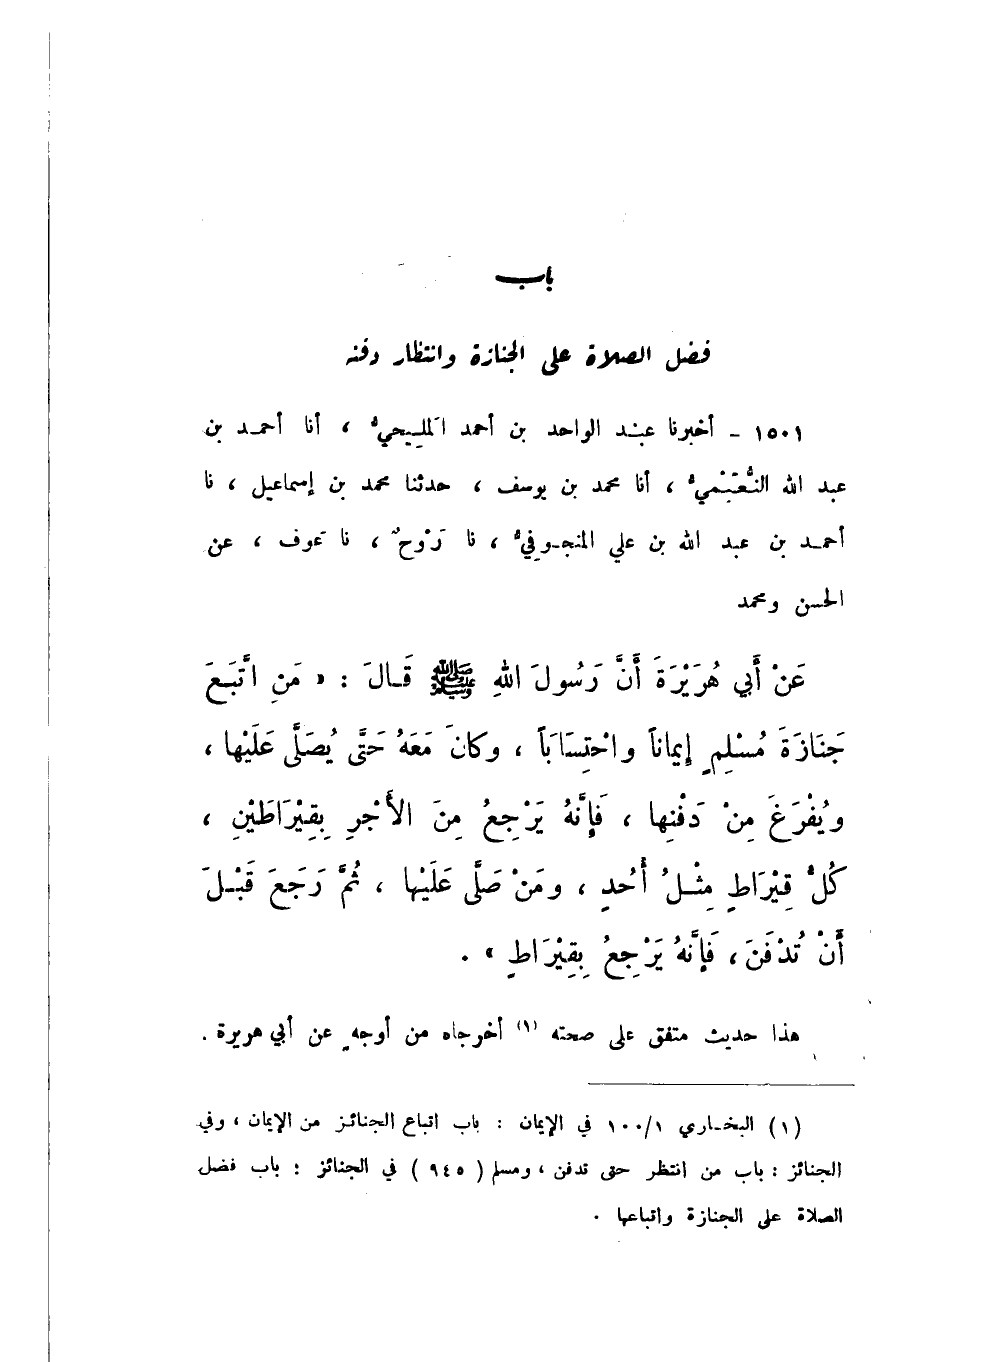 باب
فضل الصلاة على الجنازة وانتظار دفنه
١٥٠١ - أخبرنا عبْد الواحد بن أحمد المَلِيحيُّ ، أنا أحمد بن
عبد الله النُّعَيْميُّ ، أنا محمد بن يوسف ، حدثنا محمد بن إسماعيل ، نا
أحمد بن عبد الله بن علي المنجوفيُّ ، نا رَوْحٌ ، نا عَوف ، عن
الحسن ومحمد
عَنْ أَبي هُرَيْرَةَ أَنَّ رَسُولَ اللهِ ﷺ قَالَ : « مَنِ اتَّبَعَ
جَنَازَةَ مُسْلِمٍ إِيماناً واحْتِسَابَاً ، وكانَ مَعَهُ حَتَّى يُصَلَّى عَلَيْها ،
ويُفْرَغَ مِنْ دَفْنِها ، فَإِنَّهُ يَرْجِعُ مِنَ الأَجْرِ بِقِيْرَاطَيْنِ ،
كُلُّ قِيْرَاطٍ مِثْلُ أُحُدٍ ، ومَنْ صَلَّى عَلَيْها ، ثُمَّ رَجَعَ قَبْلَ
أَنْ تُدْفَنَ ، فَإِنَّهُ يَرْجِعُ بِقِيْرَاطٍ » .
هذا حديث متفق على صحته (١) أخرجاه من أوجهٍ عن أبي هريرة .
(١) البخاري ١٠٠/١ في الإيمان : باب اتباع الجنائز من الإيمان ، وفي
الجنائز : باب من انتظر حتى تدفن ، ومسلم ( ٩٤٥ ) في الجنائز : باب فضل
الصلاة على الجنازة واتباعها .